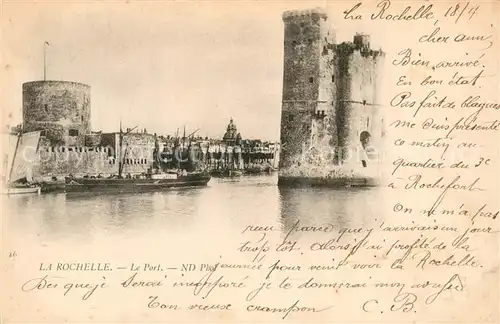 La Rochelle, 18/4
cher ami,
Bien arrivé
En bon état
Pas fait de blagues
me suis présenté
ce matin au
quartier du 3e
à Rochefort
On m'a pas
reçu parce que venu un jour
trop tôt. Alors j'ai profité de la
journée pour venir voir la Rochelle.
Dès que je serai incorporé je te donnerai mon adresse
Ton vieux crampon C. B.
16
LA ROCHELLE. — Le Port. — ND Phot